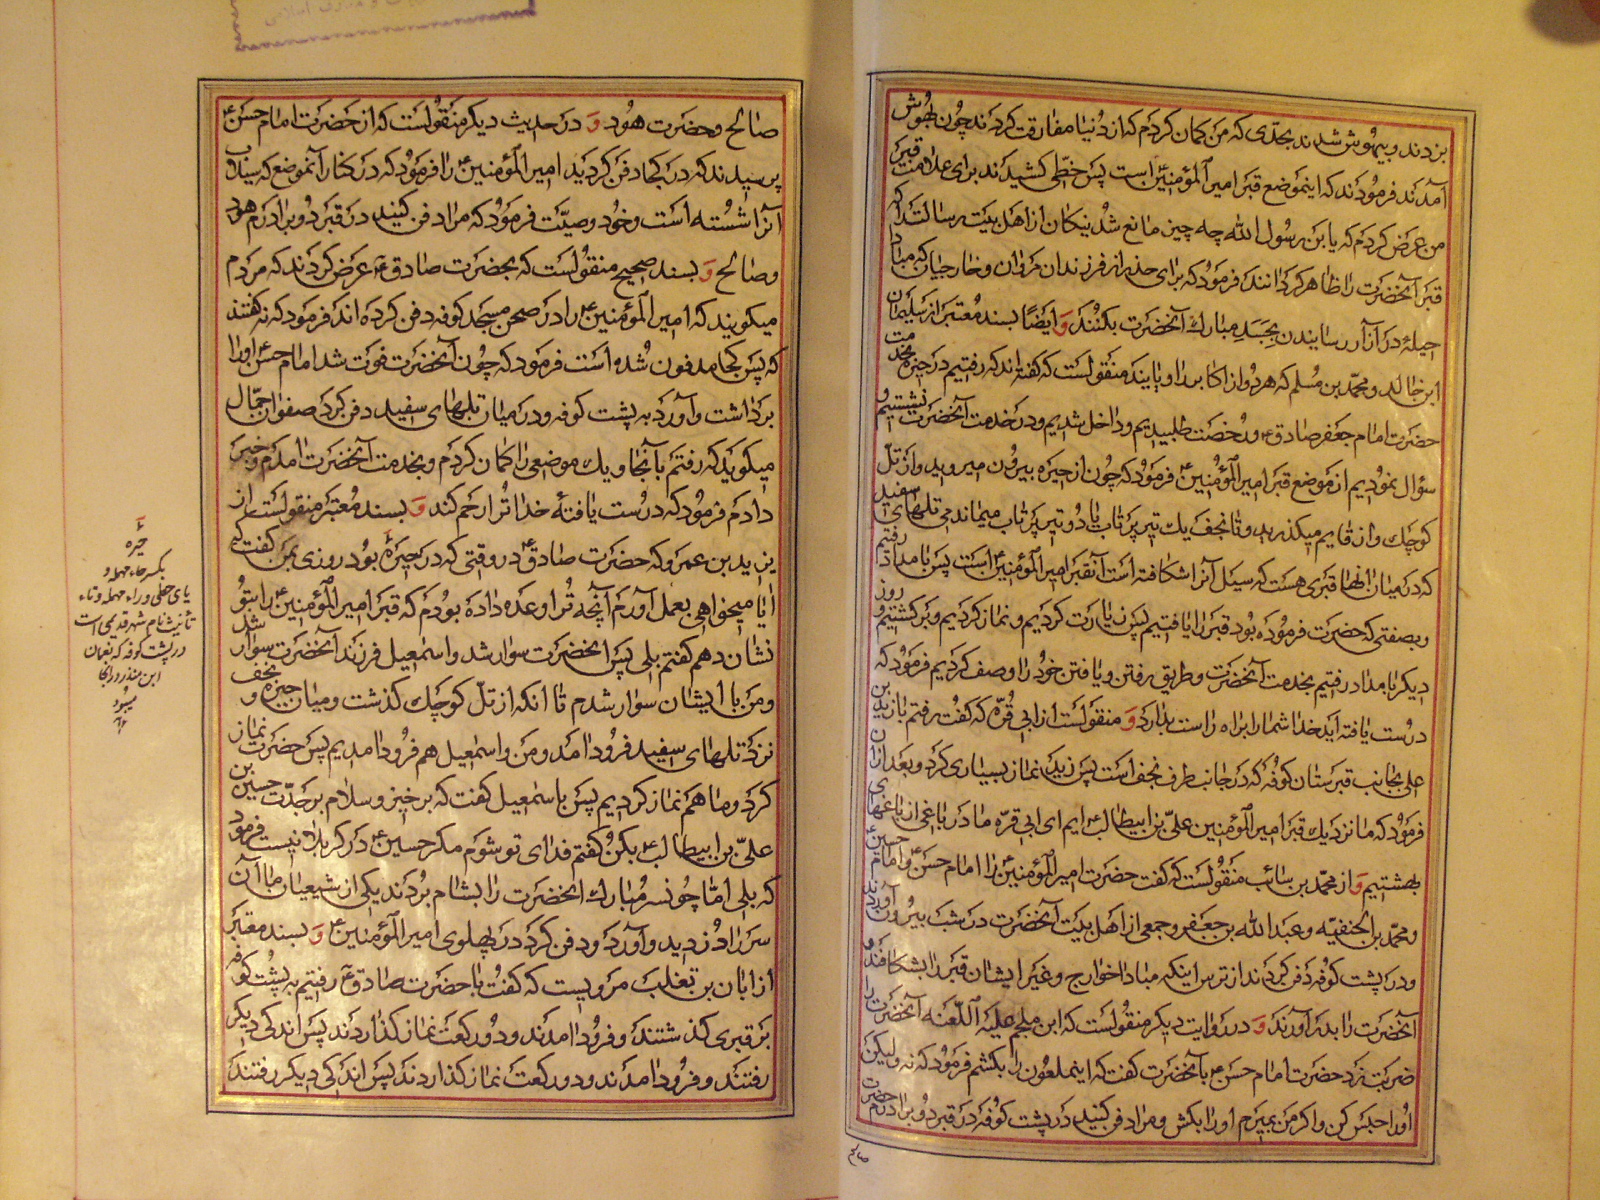 بزدند و بیهوش شدند بحدی که من کمان کردم که از دنیا مفارقت کردند چون بهوش
آمدند فرمودند که اینموضع قبر امیر المؤمنین است پس خطی کشیدند برای علامت قبر
من عرض کردم که یابن رسول الله چه چیز مانع شد نیکان از اهل بیت رسالترا که
قبر آنحضرت را ظاهر کردانند فرمود که برای حذر از فرزندان مروان و خارجیان که مباد
حیلهٔ در آزار رسانیدن بجسد مبارك آنحضرت بکنند وَ ایضًا بسند معتبر از سلیمان
ابن خالد و محمد بن مسلم که هر دو از اکابر منقولست که گفته اند که رفتیم در حیره بخدمت
حضرت امام جعفر صادق ع و رخصت طلبیدیم و داخل شدیم و در خدمت آنحضرت نشستیم و
سؤال نمودیم از موضع قبر امیر المؤمنین ع فرمود که چون از حیره بیرون میروید و از تل
کوچك و از قایم میکذرید و تا نجف یك تیر پرتاب یا دو تیر پرتاب میماند می تلهای سفید
که در میان انها قبری هست که سیل آنرا شکافته است آنقبر امیر المؤمنین ع است پس بامداد رفتیم
و بصفتی که حضرت فرموده بود قبر را یافتیم پس زیارت کردیم و نماز کردیم و برکشتیم و روز
دیکر بامداد رفتیم بخدمت آنحضرت و طریق رفتن و یافتن خود را وصف کردیم فرمود که
درست یافته اید خدا شما را براه راست بدارد وَ منقولست از ابی قره که کفت رفتم با زید بن
علی بجانب قبرستان کوفه که در جانب طرف نجف است پس زید نماز بسیاری کرد و بعد از ان
فرمود که ما نزدیك قبر امیر المؤمنین علی بن ابیطالب ع ایم ای ابی قره ما در باغی از باغهای
بهشتیم وَ از محمد بن سائب منقولست که کفت حضرت امیر المؤمنین ع را امام حسن ع و امام حسین ع
و محمد بن الحنفیه و عبد الله بن جعفر و جمعی از اهل بیت آنحضرت در شب بیرون آوردند
و در پشت کوفه دفن کردند از ترس اینکه مبادا خوارج و غیر ایشان قبر را بشکافند و
آنحضرت را بدر آورند وَ در روایت دیکر منقولست که ابن ملجم علیه اللعنه آنحضرت را
ضربت زد حضرت امام حسن ع بآنحضرت کفت که اینملعون را بکشم فرمود که نه و لیکن
اورا حبس کن و اکر من بمیرم اورا بکش و مرا دفن کنید در پشت کوفه در قبر دو برادرم حضرت
صالح
صالح و حضرت هود وَ در حدیث دیکر منقولست که از حضرت امام حسن ع
پرسیدند که در کجا دفن کردید امیر المؤمنین ع را فرمود که در کنار آنموضع که سیلاب
آنرا شسته است و خود وصیّت فرمود که مرا دفن کنید در قبر دو برادرم هود
و صالح وَ بسند صحیح منقولست که بحضرت صادق ع عرض کردند که مردم
میکویند که امیر المؤمنین ع را در صحن مسجد کوفه دفن کرده اند فرمود که نه کفتند
که پس کجا مدفون شده است فرمود که چون آنحضرت فوت شد امام حسن ع اورا
برداشت و آورد به پشت کوفه و در میان تلهای سفید دفن کرد صفوان جمّال
میکوید که رفتم بآنجا و یك موضعی را کمان کردم و بخدمت آنحضرت امدم و خبر
دادم فرمود که درست یافتهٔ خدا ترا رحم کند وَ بسند معتبر منقولست از
یزید بن عمرو که حضرت صادق ع در وقتی که در حیره بود روزی بمن کفت که
ایا میخواهی بعمل آورم آنچه ترا وعده داده بودم که قبر امیر المؤمنین ع را بتو
نشان دهم کفتم بلی پس انحضرت سوار شد و اسمعیل فرزند آنحضرت سوار شد
و من با ایشان سوار شدم تا انکه از تل کوچك کذشت و میان حیره و نجف
نزد تلهای سفید فرود امد و من و اسمعیل هم فرود امدیم پس حضرت نماز
کرد و ما هم نماز کردیم پس باسمعیل کفت که برخیز و سلام بر جدّت حسین بن
علی بن ابیطالب ع بکن کفتم فدای تو شوم مکر حسین ع در کربلا نیست فرمود
که بلی امّا چون سر مبارك انحضرت را بشام بردند یکی از شیعیان ما آن
سر را دزدید و آورد و دفن کرد در پهلوی امیر المؤمنین ع وَ بسند معتبر
از ابان بن تغلب مرویست که کفت با حضرت صادق ع رفتیم به پشت کوفه
بر قبری کذشتند و فرود امدند و دو رکعت نماز کذاردند پس اندکی دیکر
رفتند و فرود امدند و دو رکعت نماز کذاردند پس اندکی دیکر رفتند
حیره
بکسر حاء مهمله و
یای حطی و راء مهمله و تاء
تأنیث نام شهر قدیمی است
در پشت کوفه که نعمان
ابن منذر در انجا
میبود